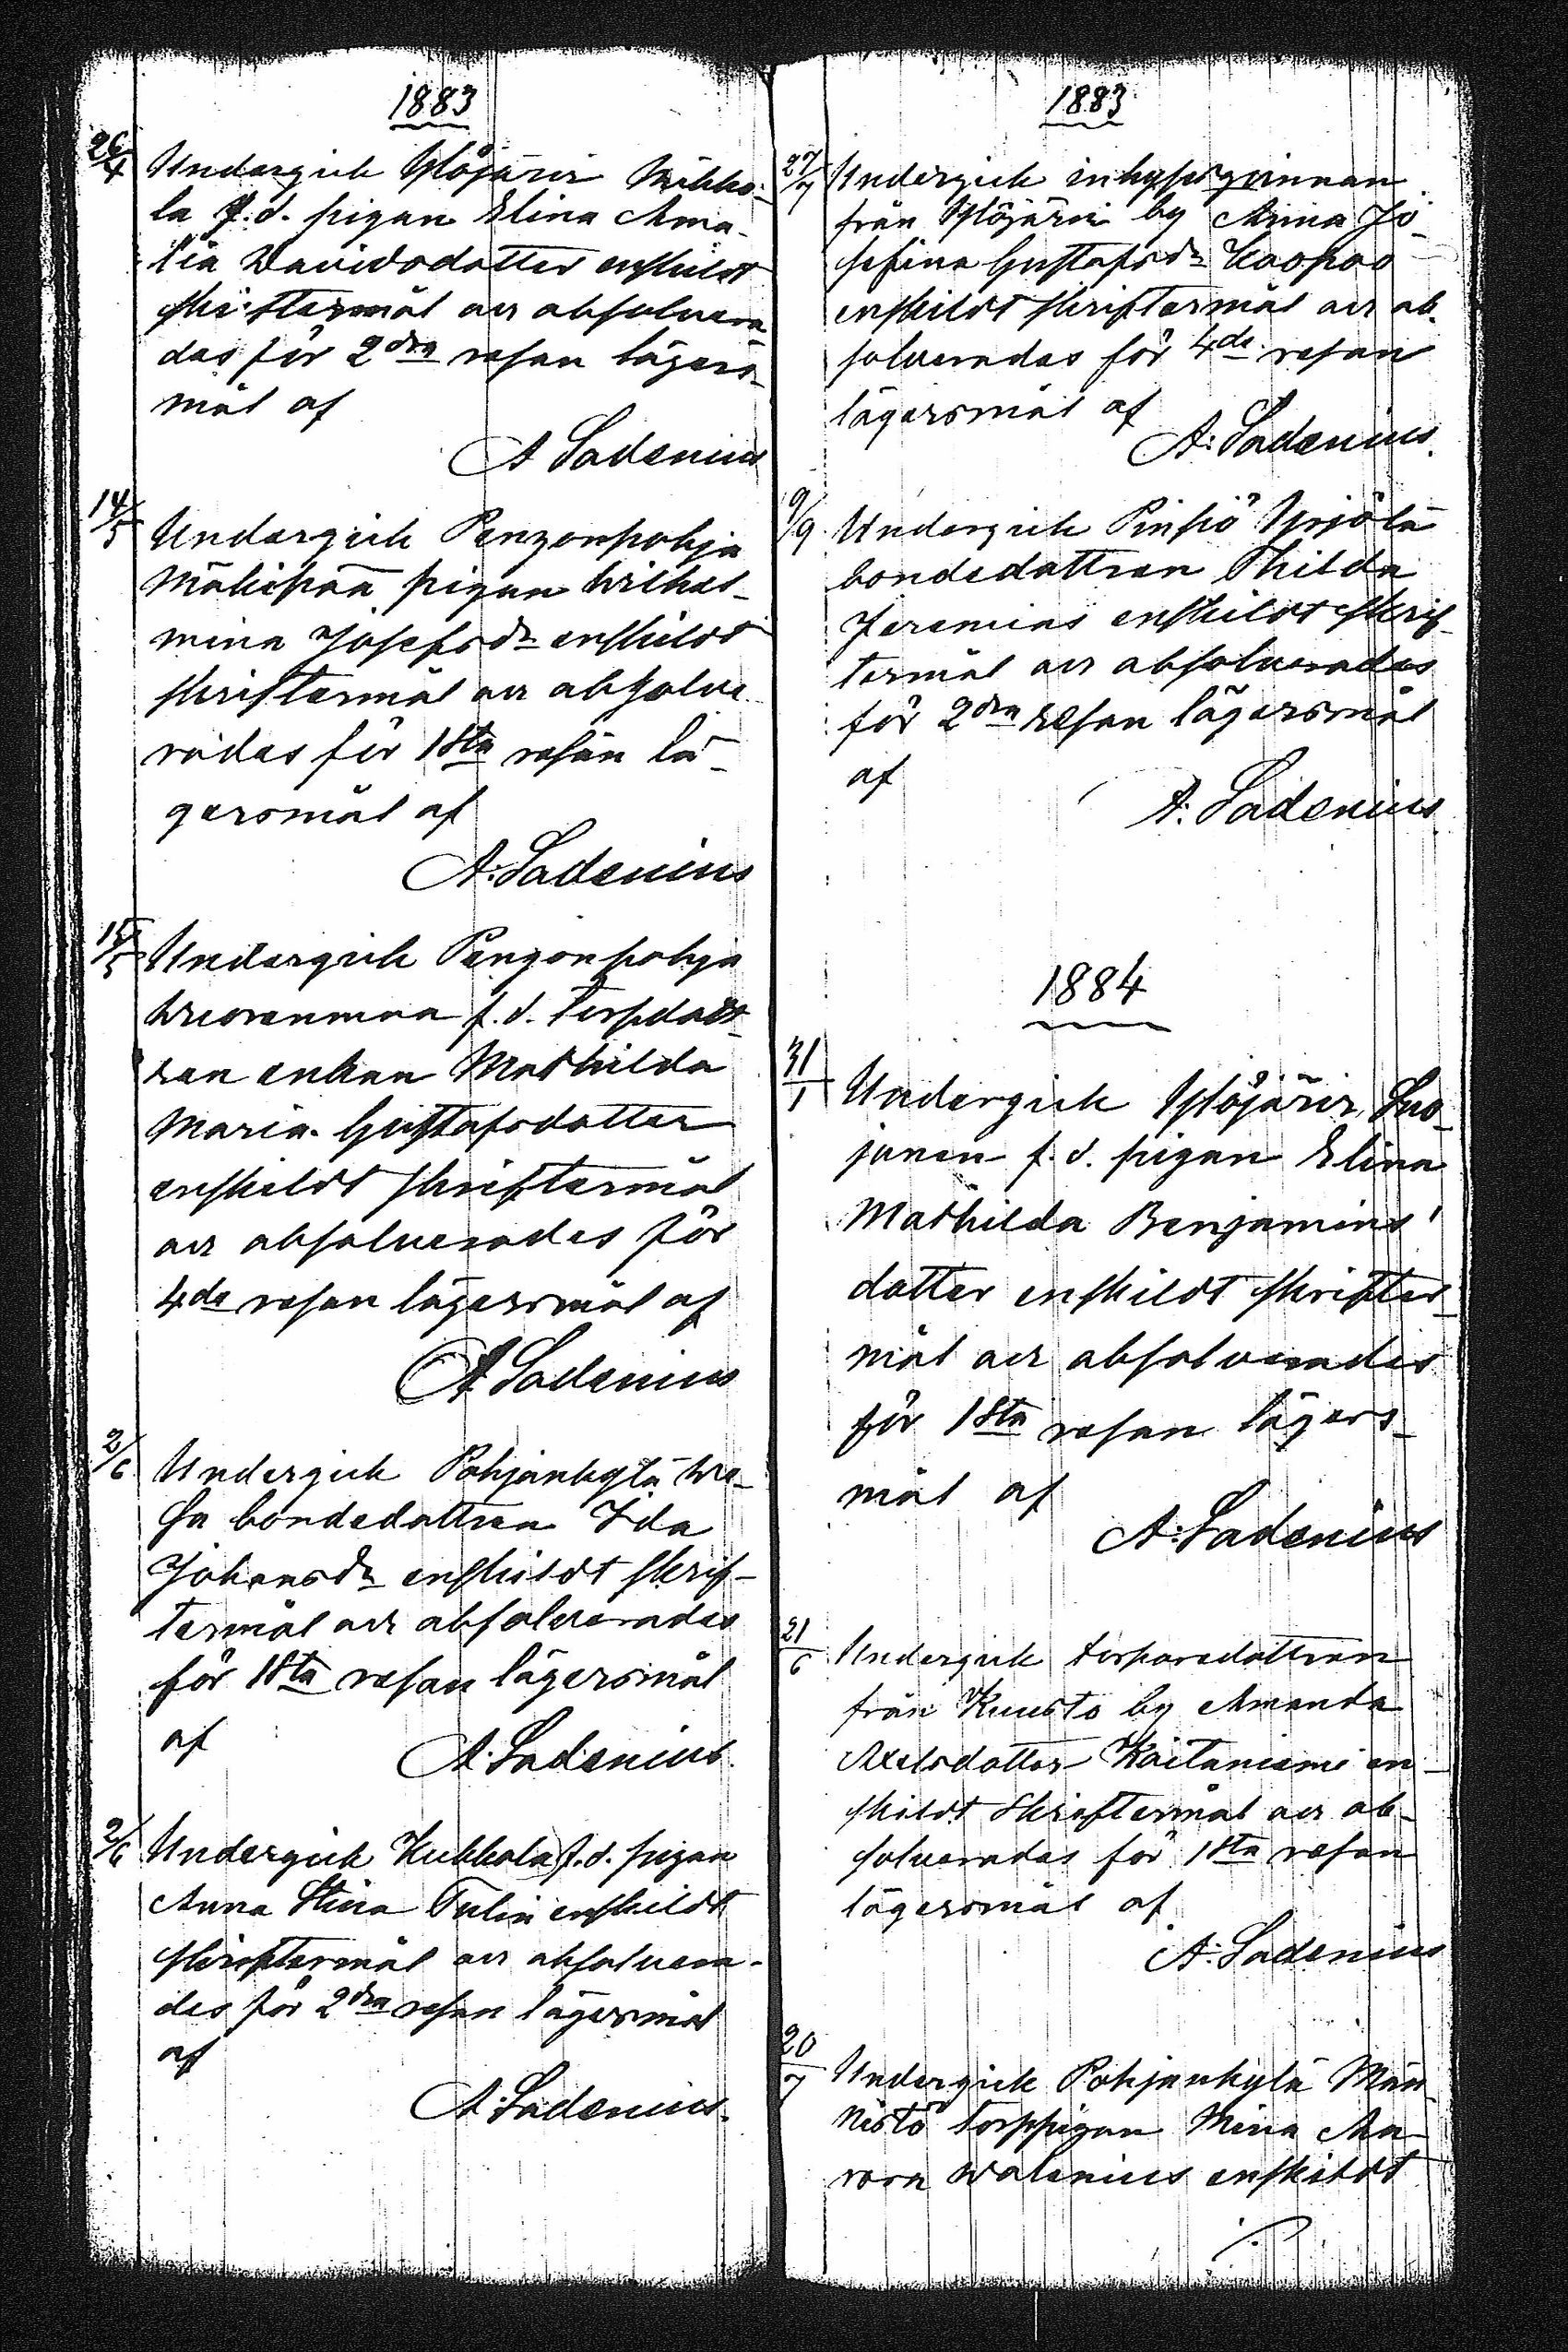 1883
26/4 Undergick Ylöjärvi Mikko-
la f.d. pigan Elina Ama-
lia Davidsdotter enskildt
skriftermål och absolvera-
des för 2dra resan lägers-
mål af
A Ladenius
14/5 Undergick Penzonpohja
Mäkipää pigan Wilhel-
mina Josefsdr enskildt
skriftermål och absolve-
rades för 1sta resan lä-
gersmål af
A. Ladenius
15/5 Undergick Penzonpohja
Wuorenmaa f.d. torpdott-
ran enkan Mathilda
Maria Gustafsdotter
enskildt skriftermål
och absolverades för
4de resan lägersmål af
A Ladenius
2/6 Undergick Pohjankylä We-
sa bondedottren Ida
Johansdr enskildt skrif-
termål och absolverades
för 1sta resan lägersmål
af
A. Ladenius.
2/6 Undergick Kukkola f.d. pigan
Anna Stina Tulin enskildt
skriftermål och absolvera-
des för 2dra resan lägersmål
af
A. Ladenius.
1883
27/7 Undergick inhyseqvinnan
från Ylöjärvi by Anna Jo-
sefina Gustafsdr Koopoo
enskildt skriftermål och ab-
solverades för 4de resan
lägersmål af
A. Ladenius.
9/9 Undergick Pinsiö Yrjölä
bondedottren Thilda
Jeremias enskildt skrif-
termål och absolverades
för 2dra resan lägersmål
af
A. Ladenius
1884
31/1 Undergick Ylöjärvi Suo-
janen f.d. pigan Elina
Mathilda Benjamins
dotter enskildt skrifter-
mål och absolverades
för 1sta resan lägers-
mål af
A. Ladenius
21/6 Undergick torparedottren
från Kuusto by Amanda
Axelsdotter Kaitaniemi en-
skildt skriftermål och ab-
solverades för 1sta resan
lägersmål af
A. Ladenius
20/7 Undergick Pohjankylä Män-
nistö torppigan Mina Au-
rora Walenius enskildt
./.